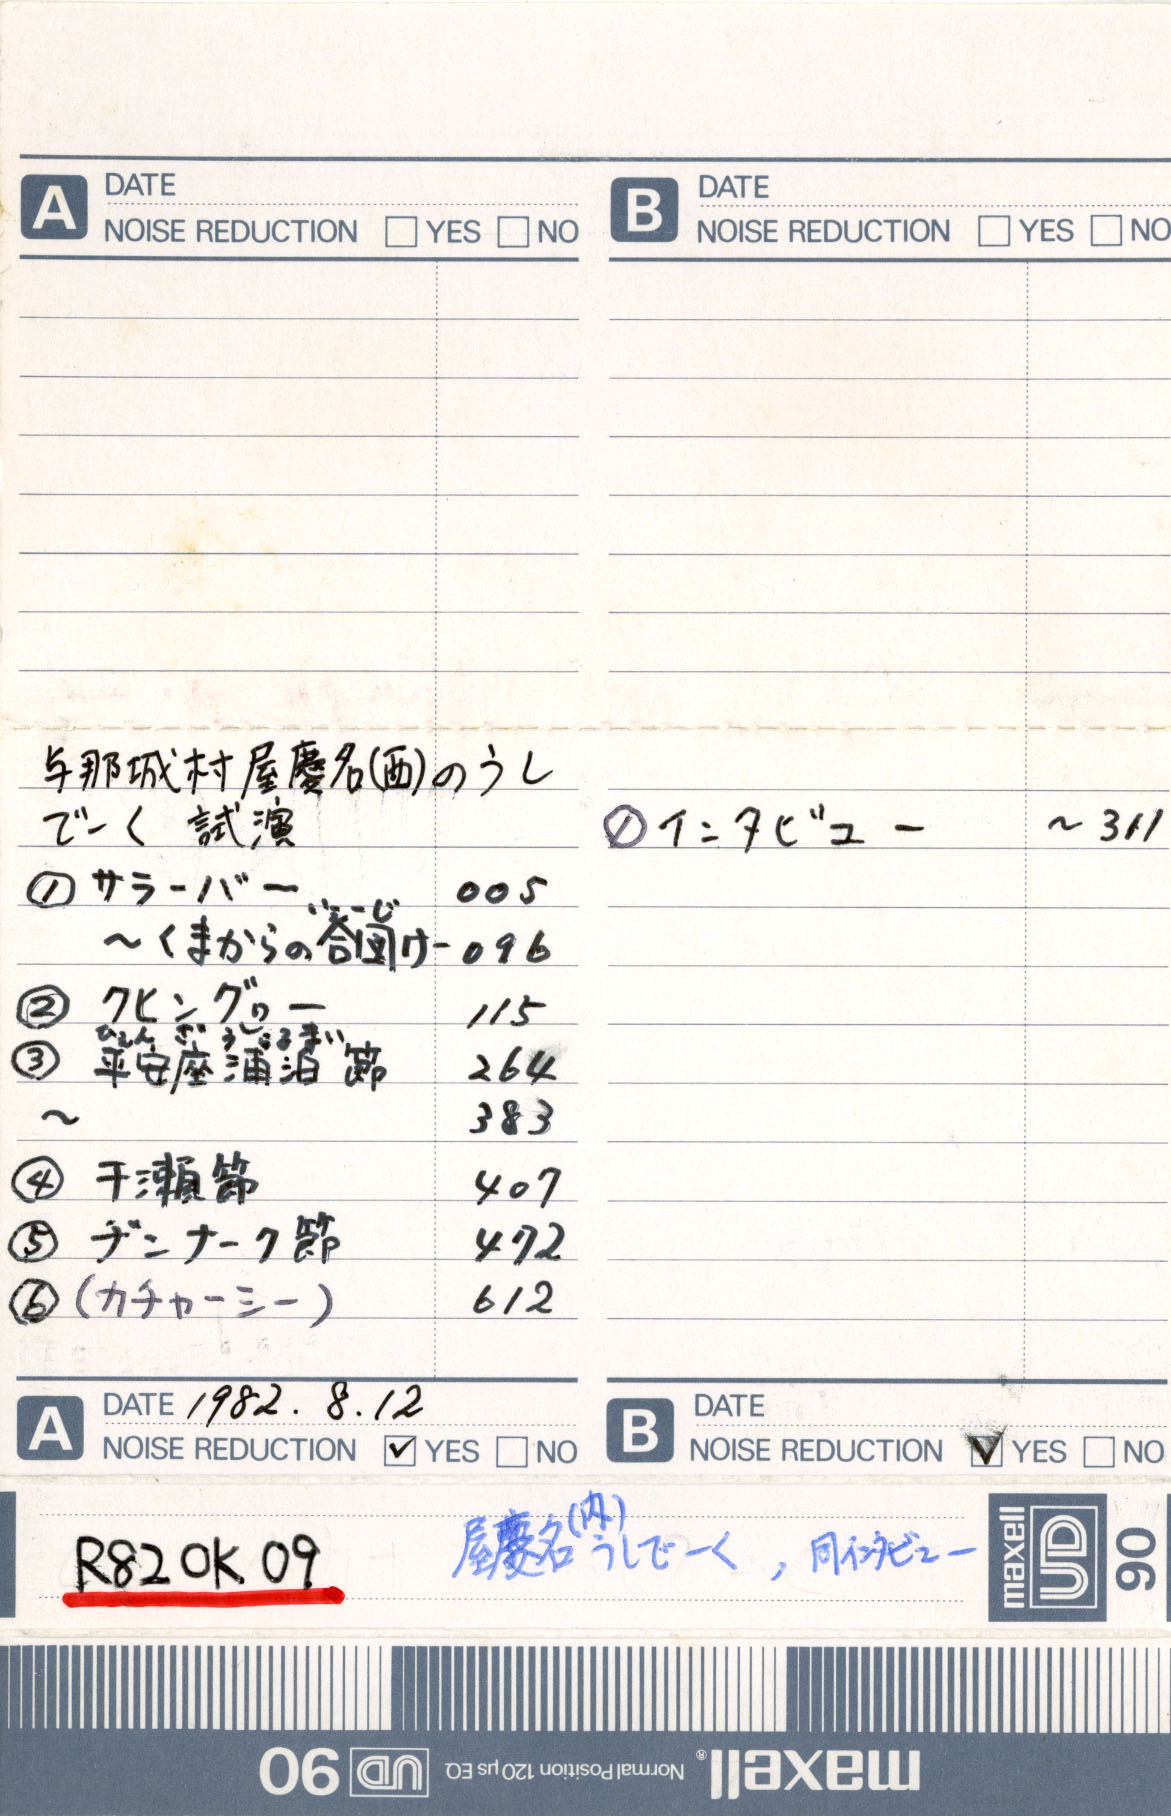 A DATE
NOISE REDUCTION □ YES □ NO
B DATE
NOISE REDUCTION □ YES □ NO
与那城村屋慶名(西)のうし
でーく 試演
① サラーバー 005
いーじ
〜くまからの合図け- 096
② クヒングヮー 115
ひぇんざ うしゅまい
③ 平安座浦泊節 264
〜 383
④ 干瀬節 407
⑤ ヂンナーク節 472
⑥ (カチャーシー) 612
① インタビュー 〜311
A DATE 1982.8.12
NOISE REDUCTION ☑ YES □ NO
B DATE
NOISE REDUCTION ☑ YES □ NO
R82 OK 09
屋慶名(内)うしでーく, 同インタビュー
maxell UD 90
maxell® Normal Position 120 µs EQ UD 90